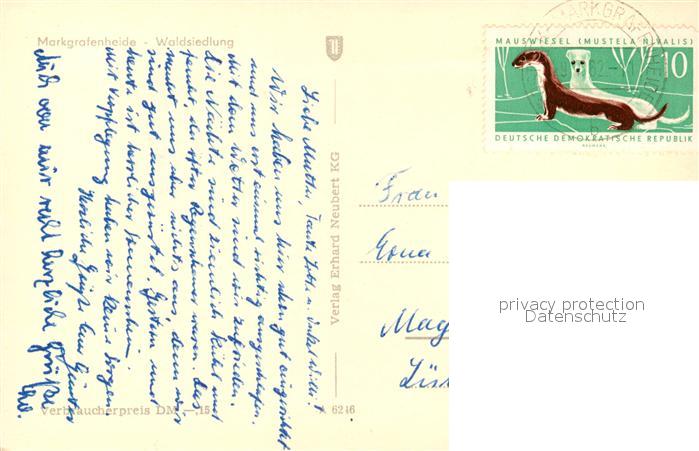 Markgrafenheide - Waldsiedlung
MARKGRAFENHEIDE
MAUSWIESEL (MUSTELA NIVALIS)
10
DEUTSCHE DEMOKRATISCHE REPUBLIK
Liebe Mutter, Tante u. Onkel Willi!
Wir haben uns hier schon gut eingerichtet
und uns erst einmal richtig ausgeschlafen.
Mit dem Wetter sind wir zufrieden.
Die Nächte sind ziemlich kühl und
Regenschauer waren. Das
macht uns aber nichts aus, denn wir
sind gut ausgerüstet. Gestern und
heute ist herrlicher Sonnenschein.
Mit Verpflegung haben wir keine Sorgen.
Herzliche Grüße Euer Günter
Auch von mir recht herzliche Grüße
Verlag Erhard Neubert KG
Frau
Erna
Mag
privacy protection
Datenschutz
Verbraucherpreis DM -,15
A 6246